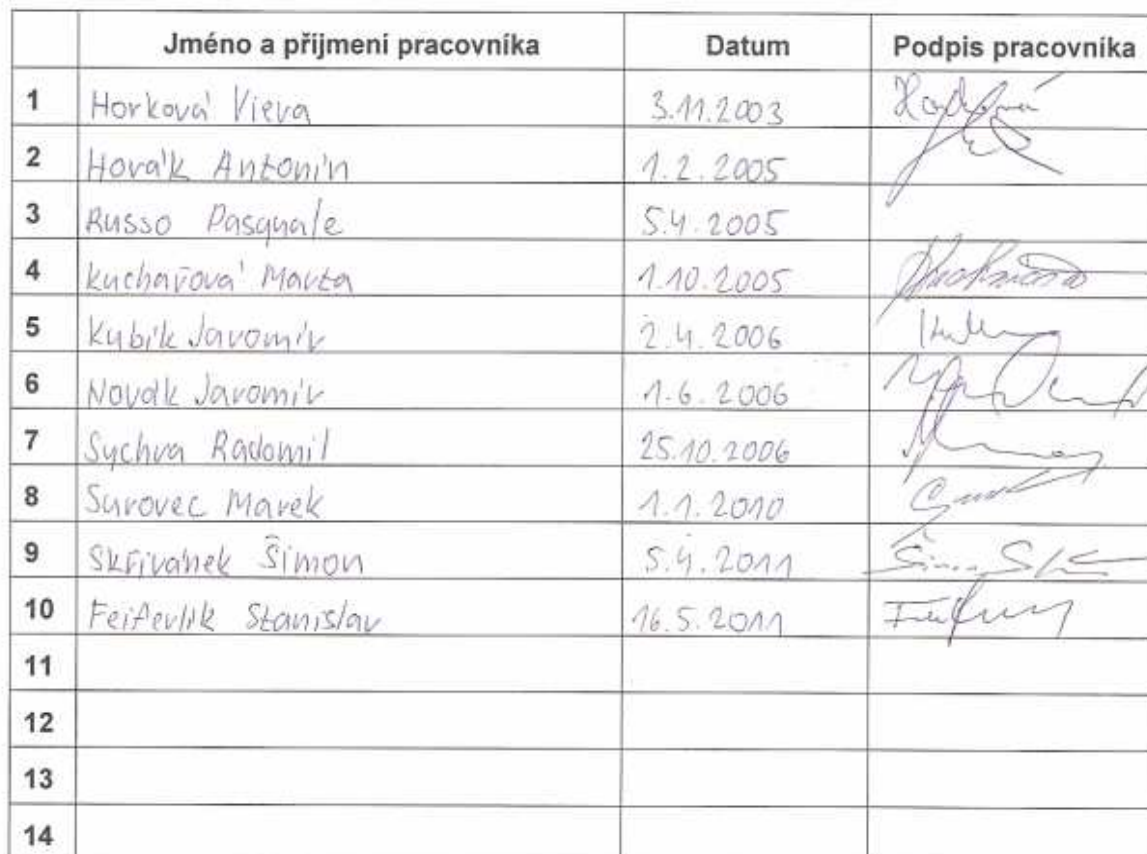 Jméno a příjmení pracovníka Datum Podpis pracovníka
1 Horková Viera 3.11.2003
2 Horák Antonín 1.2.2005
3 Russo Pasquale 5.4.2005
4 Kuchařová Marta 1.10.2005
5 Kubík Jaromír 2.4.2006
6 Novák Jaromír 1.6.2006
7 Sychra Radomil 25.10.2006
8 Surovec Marek 1.1.2010
9 Skřivánek Šimon 5.4.2011
10 Feiferlík Stanislav 16.5.2011
11
12
13
14